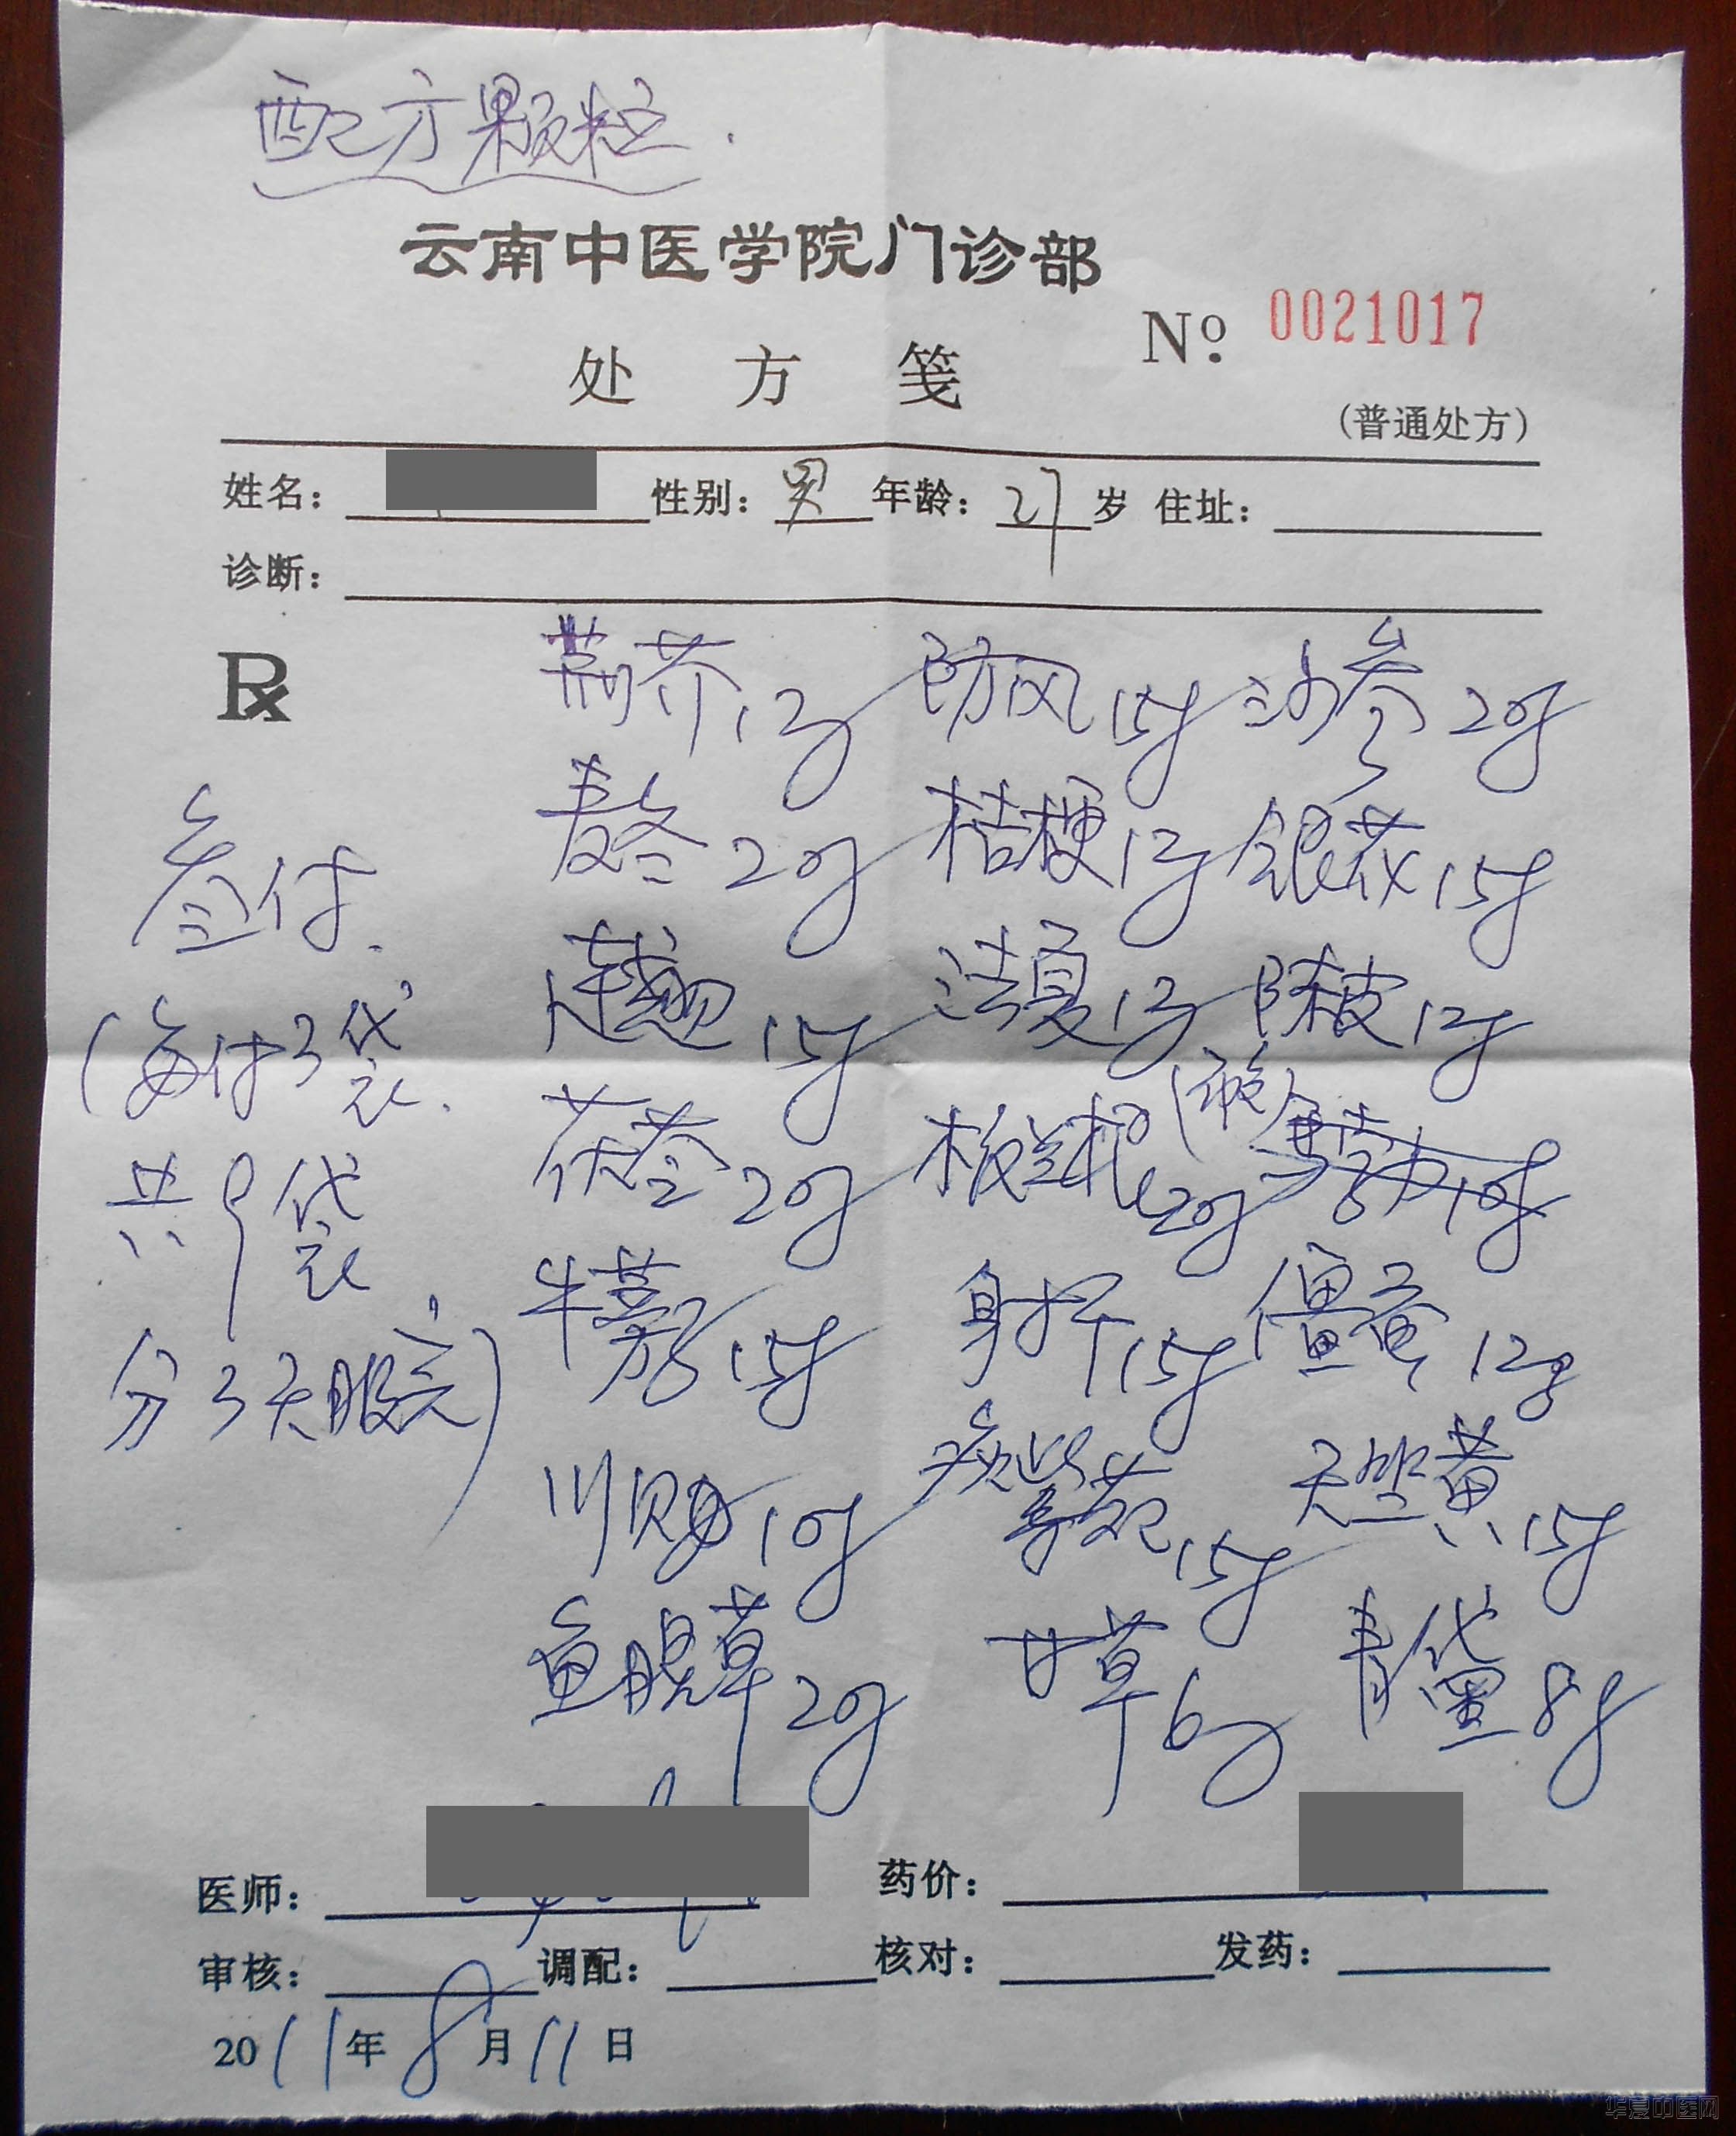 配方颗粒.
云南中医学院门诊部
No. 0021017
处方笺
(普通处方)
姓名: 性别: 男 年龄: 27 岁 住址:
诊断:
Rx
荆芥12g 防风15g 沙参20g
麦冬20g 桔梗12g 银花15g
连翘15g 法夏12g 陈皮12g
茯苓20g 板兰根20g
牛蒡子15g 射干15g 僵蚕12g
川贝10g 紫菀15g 天竺黄15g
鱼腥草20g 甘草6g 青黛8g
叁付.
(每付3袋.
共9袋
分3天服完)
医师: 药价:
审核: 调配: 核对: 发药:
2011年8月11日
华夏中医网